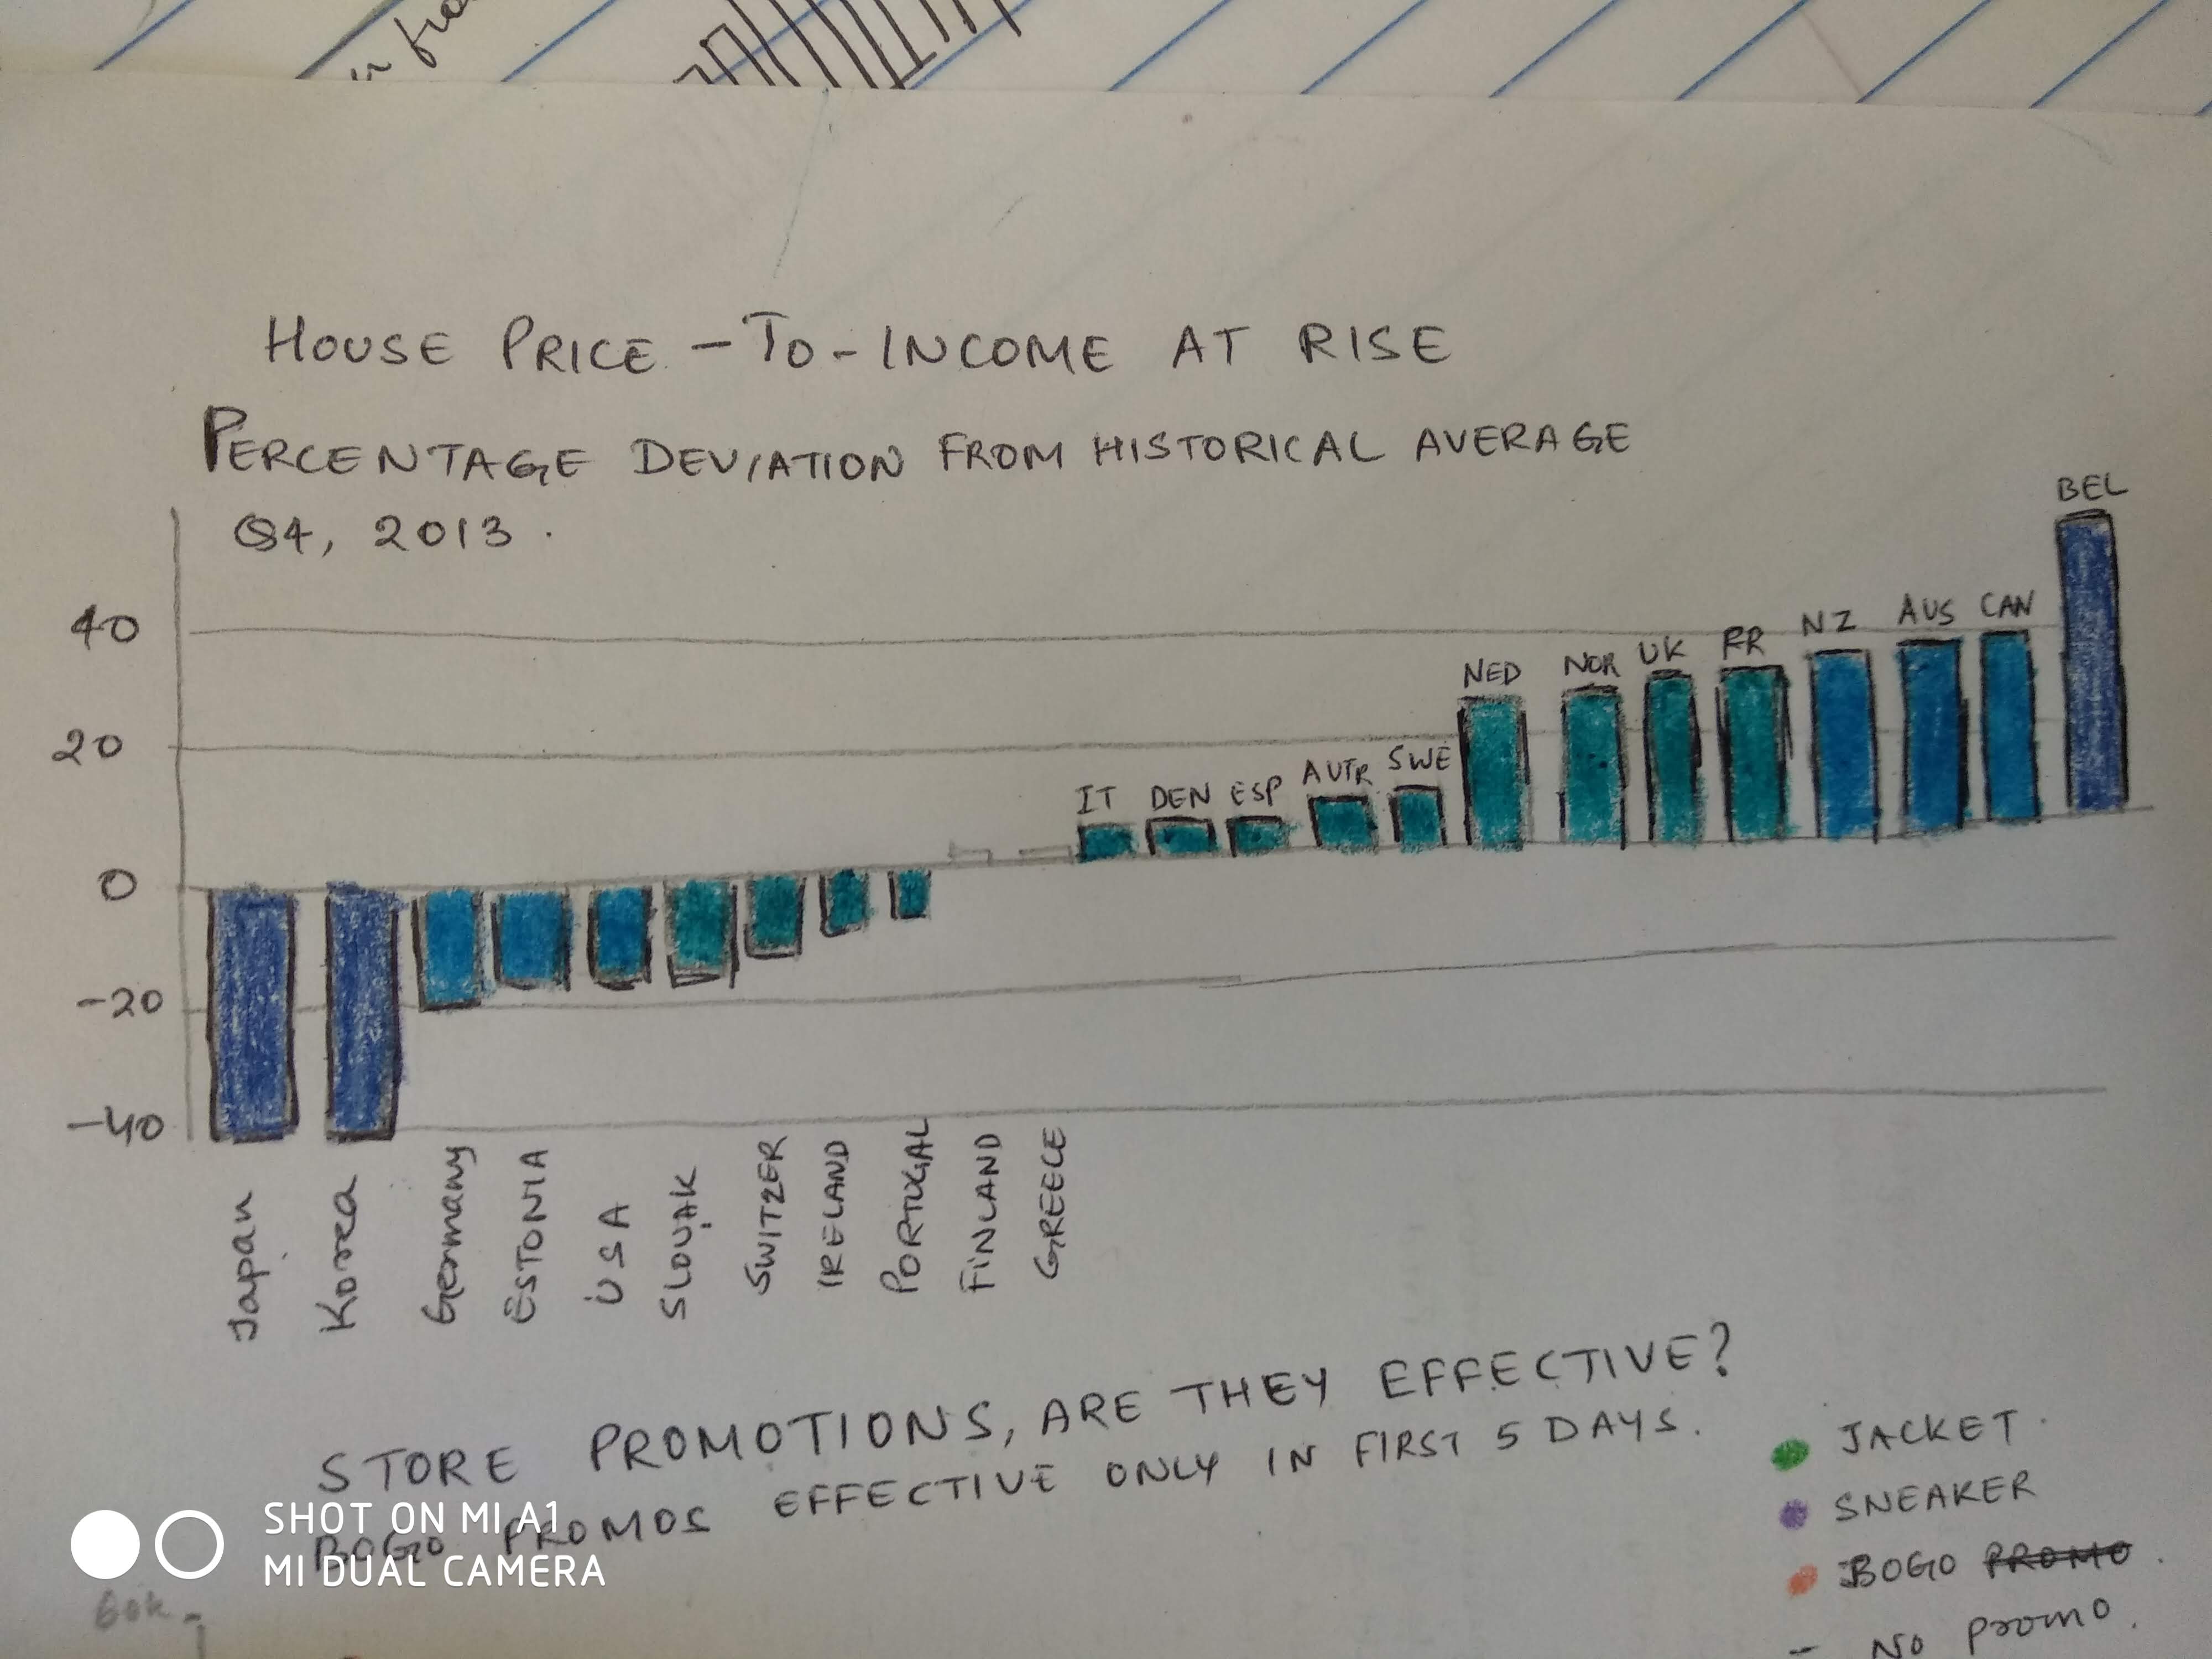 in fro
HOUSE PRICE - TO - INCOME AT RISE
PERCENTAGE DEVIATION FROM HISTORICAL AVERAGE
Q4, 2013.
BEL
40
NED NOR UK FR NZ AUS CAN
20
IT DEN ESP AUTR SWE
0
-20
-40
Japan Korea Germany ESTONIA USA SLOVAK SWITZER IRELAND PORTUGAL FINLAND GREECE
STORE PROMOTIONS, ARE THEY EFFECTIVE?
BOGO PROMOS EFFECTIVE ONLY IN FIRST 5 DAYS.
JACKET.
SNEAKER
BOGO PROMO.
- No promo.
60k -
SHOT ON MI A1
MI DUAL CAMERA